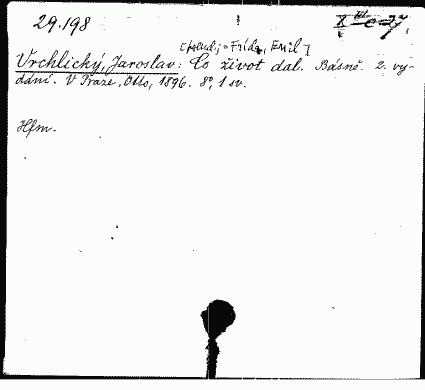 29.198
[pseud. = Frída, Emil]
Vrchlický, Jaroslav: Co život dal. Básně. 2. vy-
dání. V Praze, Otto, 1896. 8°, 1 sv.
Hfm.